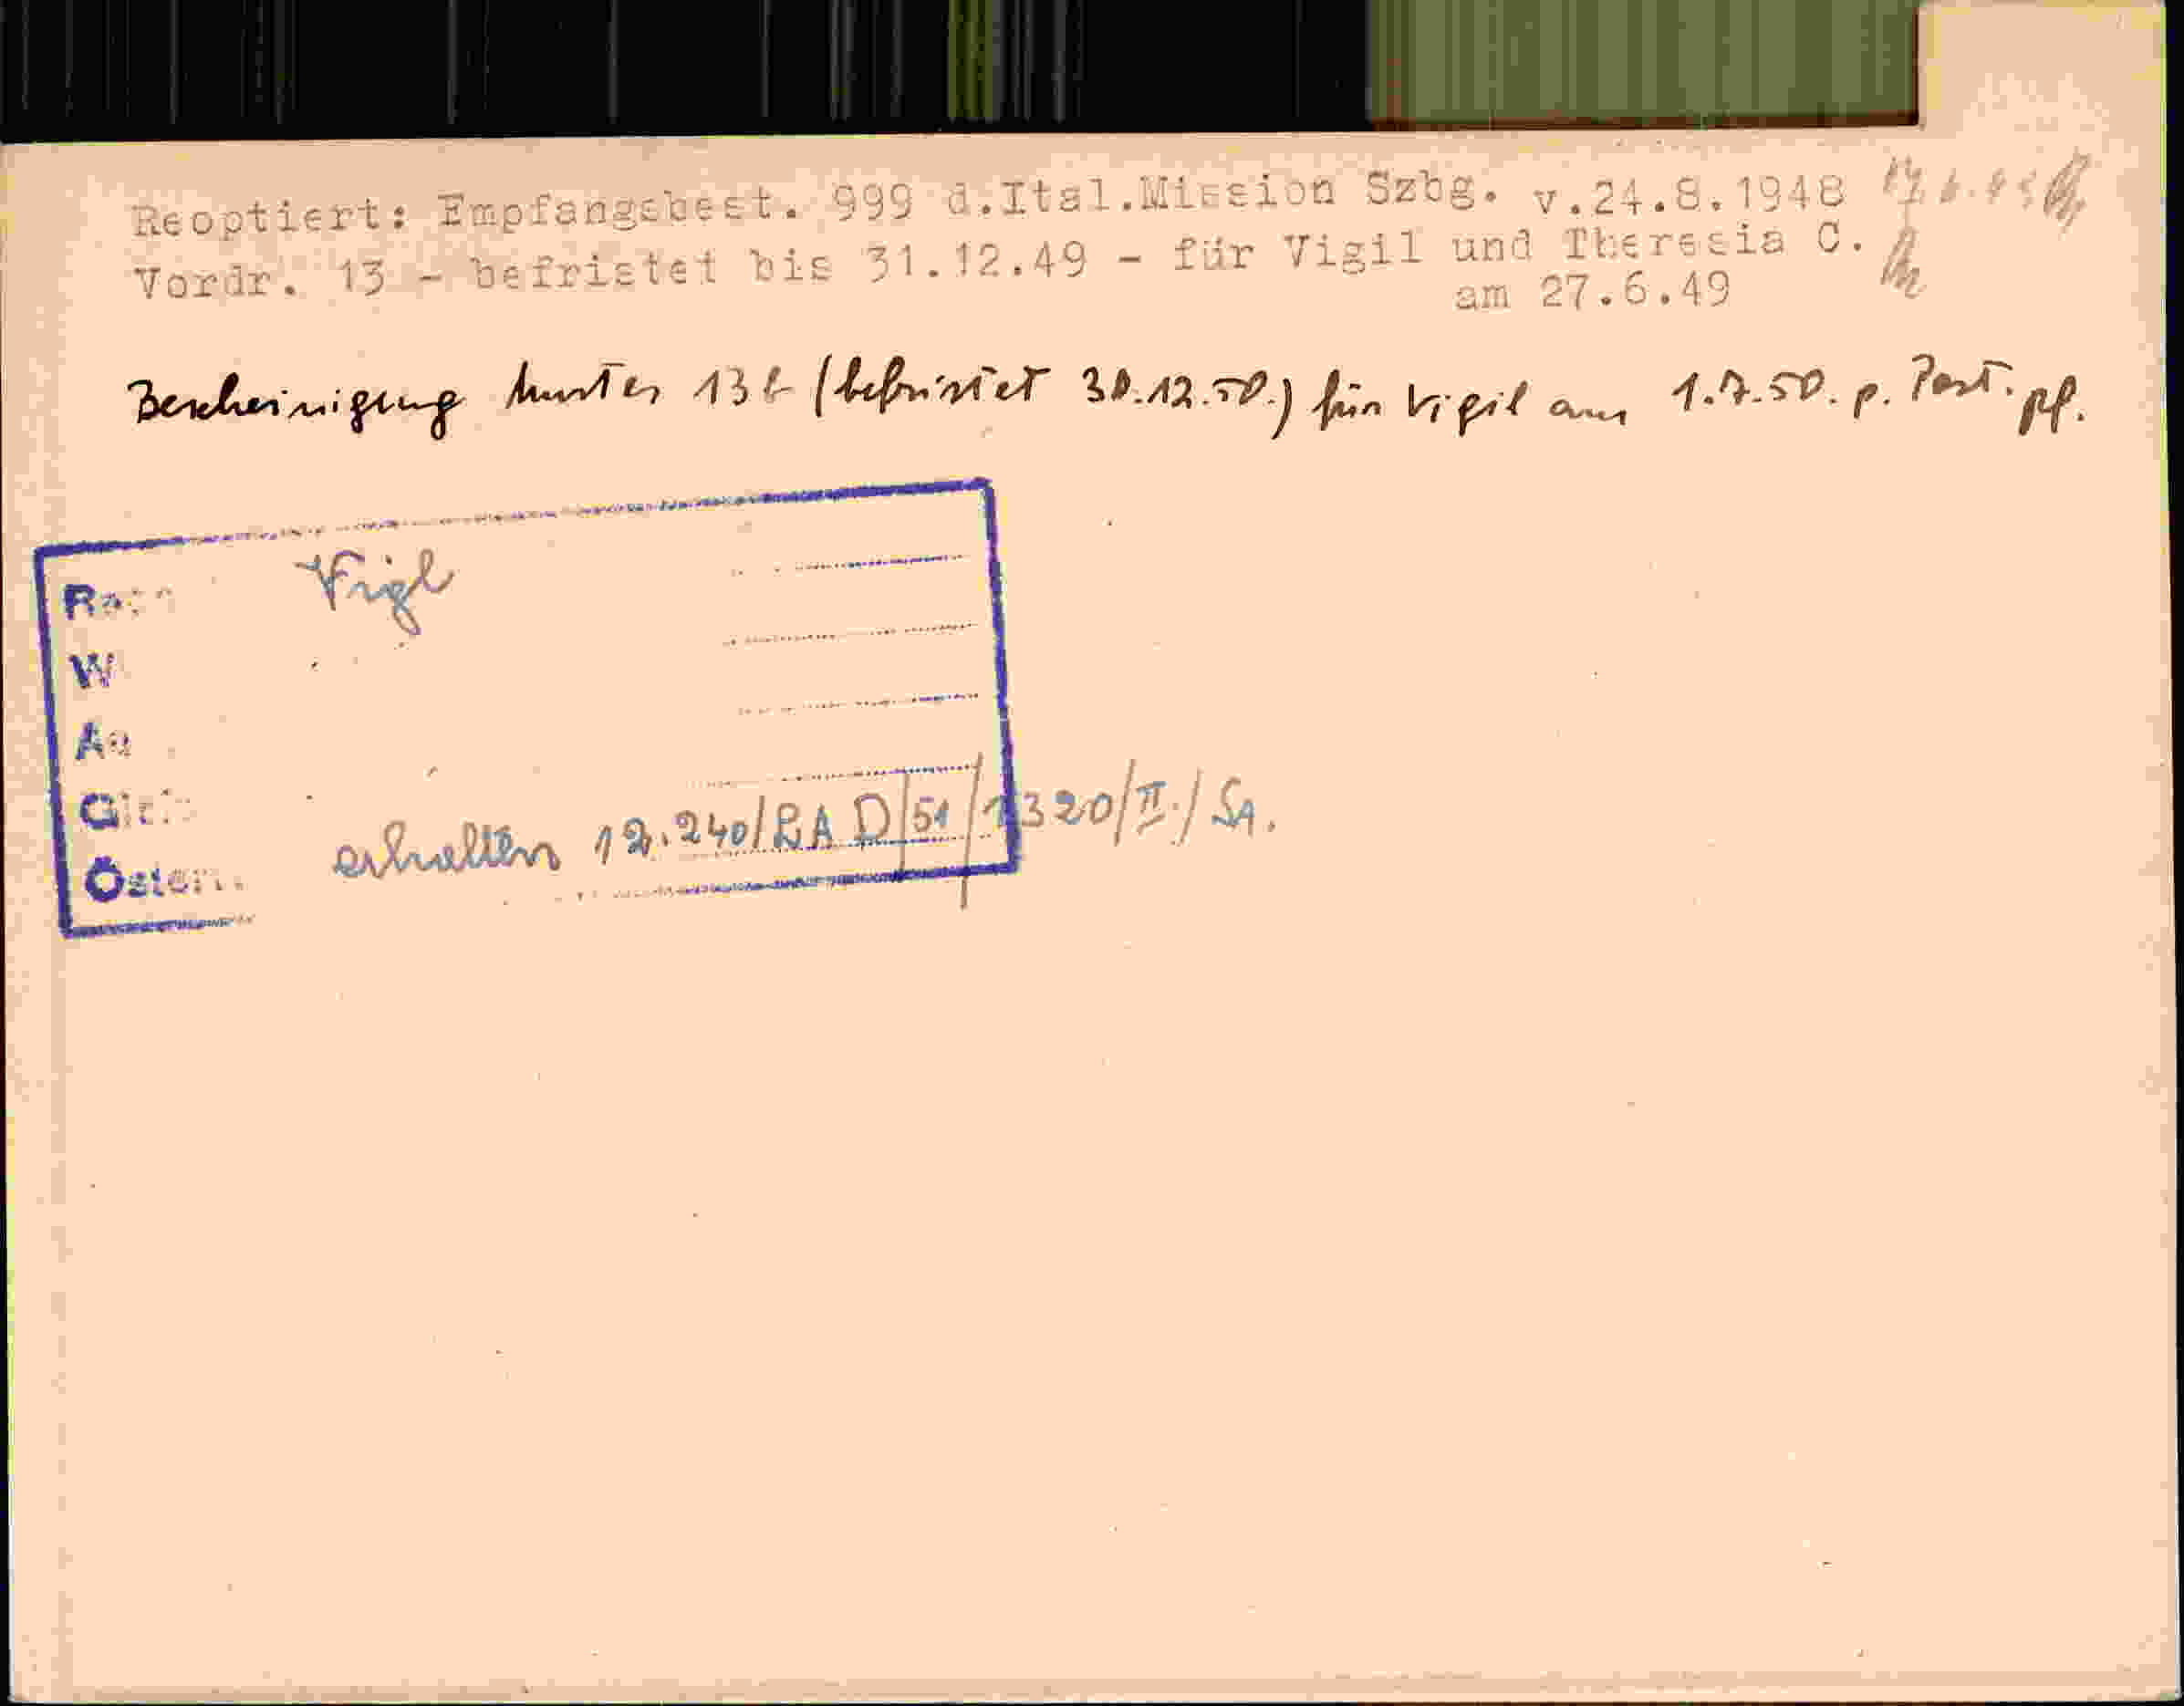 Reoptiert: Empfangsbest. 999 d.Ital.Mission Szbg. v.24.8.1948
Vordr. 13 - befristet bis 31.12.49 - für Vigil und Theresia C.
am 27.6.49
Bescheinigung Muster 13b (befristet 30.12.50.) für Vigil am 1.7.50. p. Post. pf.
Vigl
W
Österr.
erhalten 12.240/LAD/51/1320/II./SA.